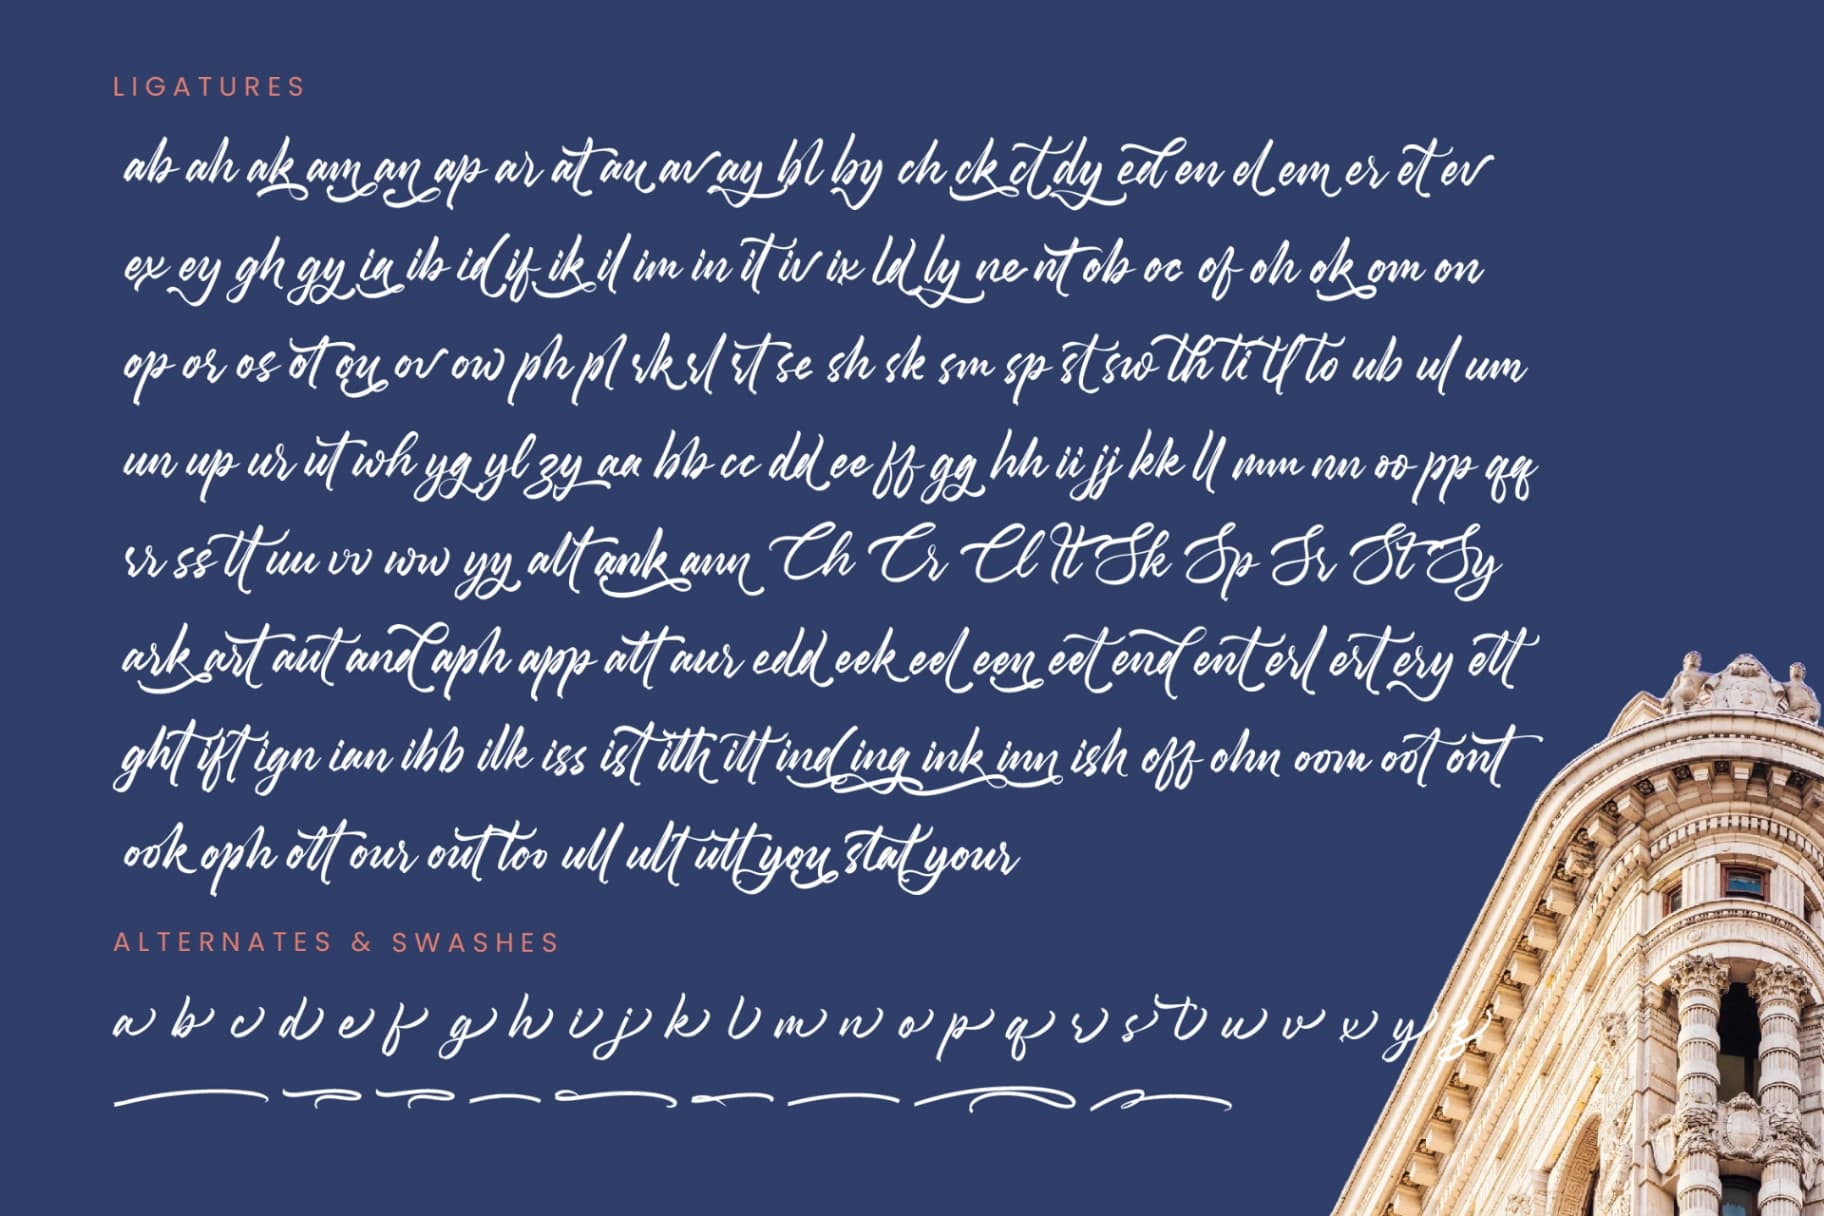 LIGATURES
ab ah ak am an ap ar at au av ay bl by ch ck ct dy ed en el em er et ev
ex ey gh gy ia ib id if ik il im in it iv ix ld ly ne nt ob oc of oh ok om on
op or os ot ou ov ow ph pl rk rl rt se sh sk sm sp st sw th ti tl to ub ul um
un up ur ut wh yg yl zy aa bb cc dd ee ff gg hh ii jj kk ll mm nn oo pp qq
rr ss tt uu vv ww yy alt ank ann Ch Cr Cl lt Sk Sp Sr St Sy
ark art aut and aph app att aur edd eek eel een eet end ent erl ert ery ett
ght ift ign ian ibb ilk iss ist ith itt ind ing ink inn ish off ohn oom oot ont
ook oph ott our out too ull ult utt you stat your
ALTERNATES & SWASHES
a b c d e f g h i j k l m n o p q r s t u v x y z